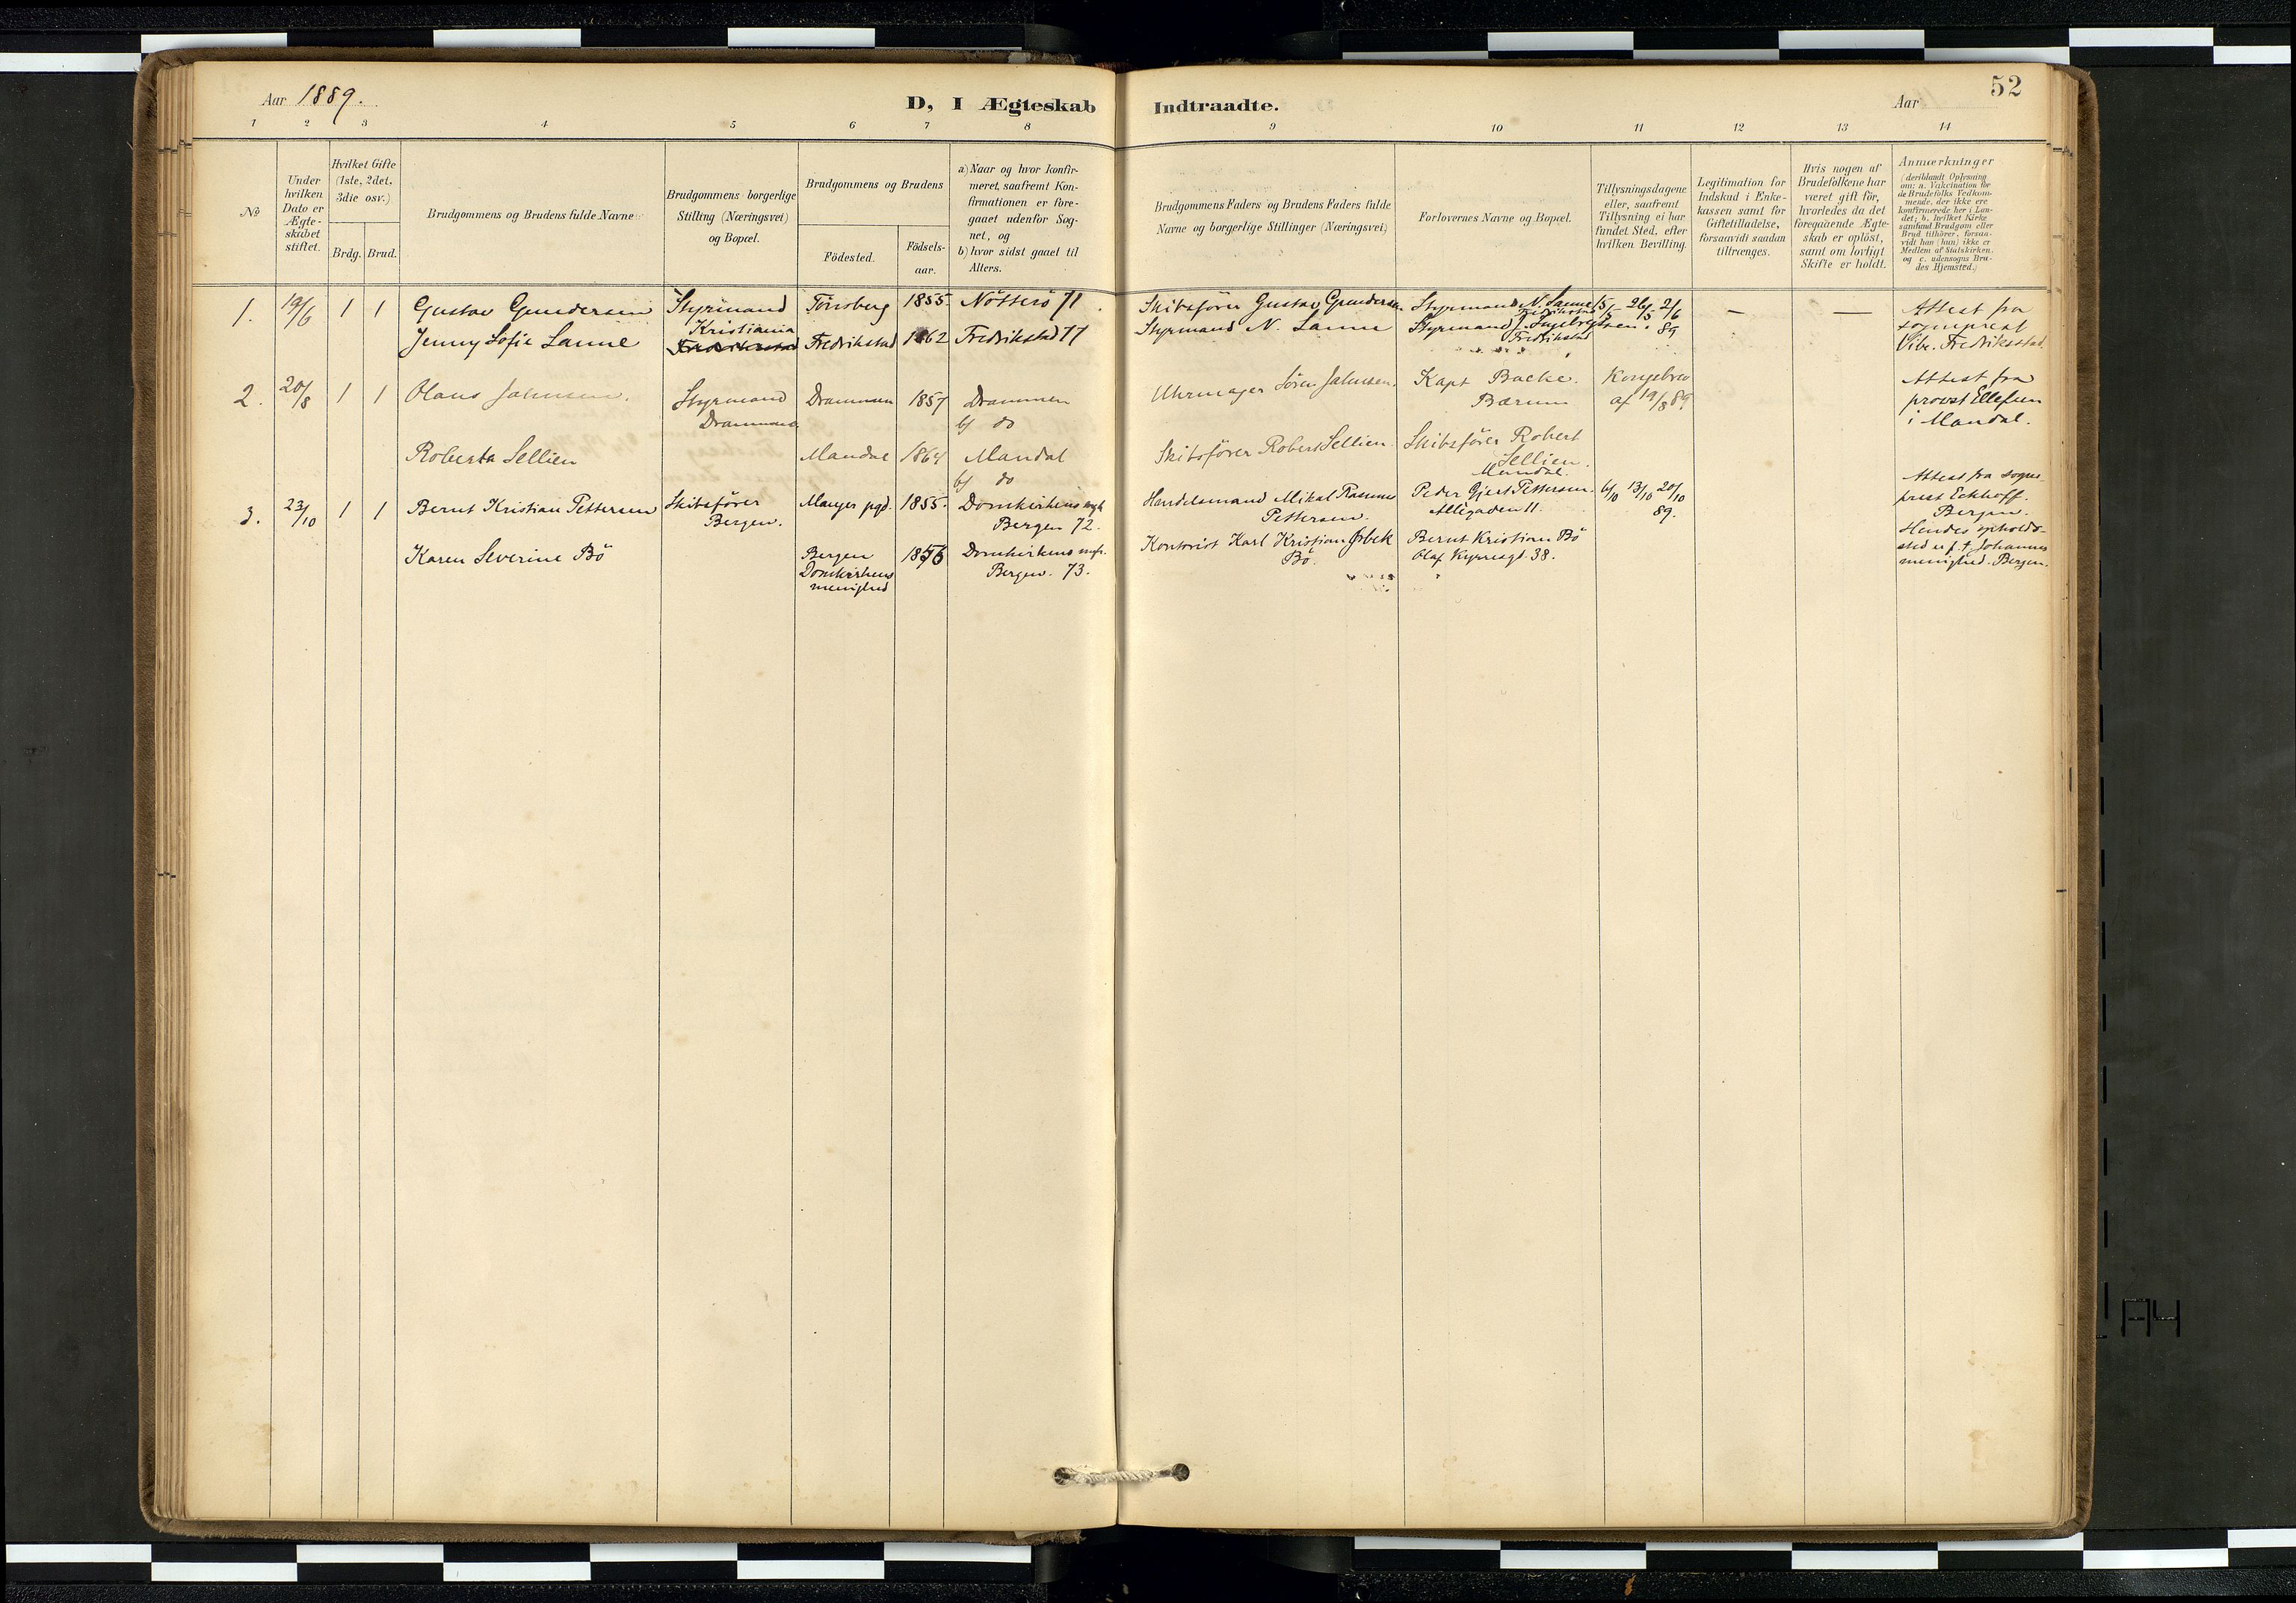 Aar 1889.
D, I Ægteskab Indtraadte.
Aar
52
1 2 3 4 5 6 7 8 9 10 11 12 13 14
No
Under
hvilken
Dato er
Ægte-
skabet
stiftet.
Hvilket Gifte
(1ste, 2det,
3die osv.)
Brdg. Brud.
Brudgommens og Brudens fulde Navne
Brudgommens borgerlige
Stilling (Næringsvei)
og Bopæl.
Brudgommens og Brudens
Födested.
Födsels-
aar.
a) Naar og hvor konfir-
meret, saafremt Kon-
firmationen er fore-
gaaet udenfor Sog-
net, og
b) hvor sidst gaaet til
Alters.
Brudgommens Faders og Brudens Faders fulde
Navne og borgerlige Stillinger (Næringsvei)
Forlovernes Navne og Bopæl.
Tillysningsdagene
eller, saafremt
Tillysning ei har
fundet Sted, efter
hvilken Bevilling.
Legitimation for
Indskud i Enke-
kassen samt for
Giftetilladelse,
forsaavidt saadan
tiltrænges.
Hvis nogen af
Brudefolkene har
været gift för,
hvorledes da det
foregaaende Ægte-
skab er oplöst,
samt om lovligt
Skifte er holdt.
Anmærkninger
(deriblandt Oplysning
om: a. Vakcination for
de Brudefolks Vedkom-
mende, der ikke ere
konfirmerede her i Lan-
det; b. hvilket Kirke
samfund Brudgom eller
Brud tilhörer, forsaa-
vidt han (hun) ikke er
Medlem af Statskirken,
og c. udensogns Bru-
des Hjemsted.)
1. 19/6 1 1 Gustav Gundersen Styrmand Tönsberg 1855. Nötterö 71. Skibsförer Gustav Gundersen Styrmand N. Sanne 15/5 26/5 2/6 — — Attest fra
Kristiania Fredrikstad 89 sogneprest
Jenny Sofie Sanne Fredrikstad Fredrikstad 1862 Fredrikstad 77 Styrmand N. Sanne Styrmand J. Ingebrigtsen. Vibe. Fredrikstad.
Fredrikstad
2. 20/8 1 1 Olaus Jahnsen. Styrmand Drammen 1857 Drammen Uhrmager Sören Jahnsen. Kapt Backe. Kongebrev Attest fra
Drammen b) do Bærum af 19/8 89 provst Ellefsen
i Mandal.
Roberta Sellien Mandal 1864 Mandal Skibsförer Robert Sellien. Skibsförer Robert
b) do Sellien.
Mandal.
3. 23/10 1 1 Bernt Kristian Pettersen Skibsförer Manger pgd. 1855. Domkirkens Handelsmand Mikal Rasmus Peder Gjert Pettersen. 6/10 13/10 20/10 Attest fra sogne
Bergen. Bergen 72. Pettersen. Allégaden 11. 89. prest Eckhoff.
Bergen.
Karen Severine Bö Bergen 1856 Domkirkens Kontorist Karl Kristian Bernt Kristian Bö Hendes opholds-
Domkirkens Bergen. 73. Bö. Olaf Kyrresgd. 38. sted er Johannes
menighed menighed. Bergen.